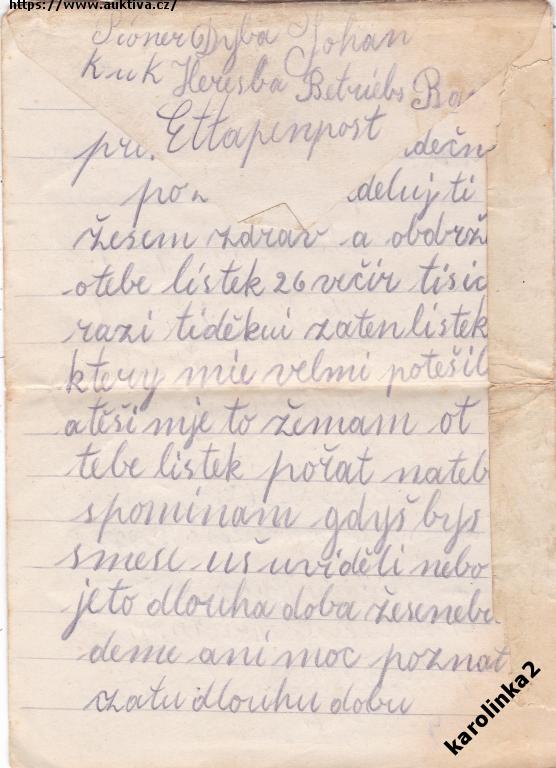 https://www.auktiva.cz/
Pioner Dyba Johan
kuk Heresba Betriebs Ba
Ettapenpost
pri. dečn
poz deluj ti
žesem zdrav a obdrže
otebe listek 26 večir tisic
razi tiděkui zatenlistek
ktery mie velmi potešil
atěši mje to žemam ot
tebe listek pořat nateb
spominam gdyš bys
smese uš uviděli nebo
jeto dlouha doba žesenebu
deme ani moc poznat
zatu dlouhu dobu
karolinka2